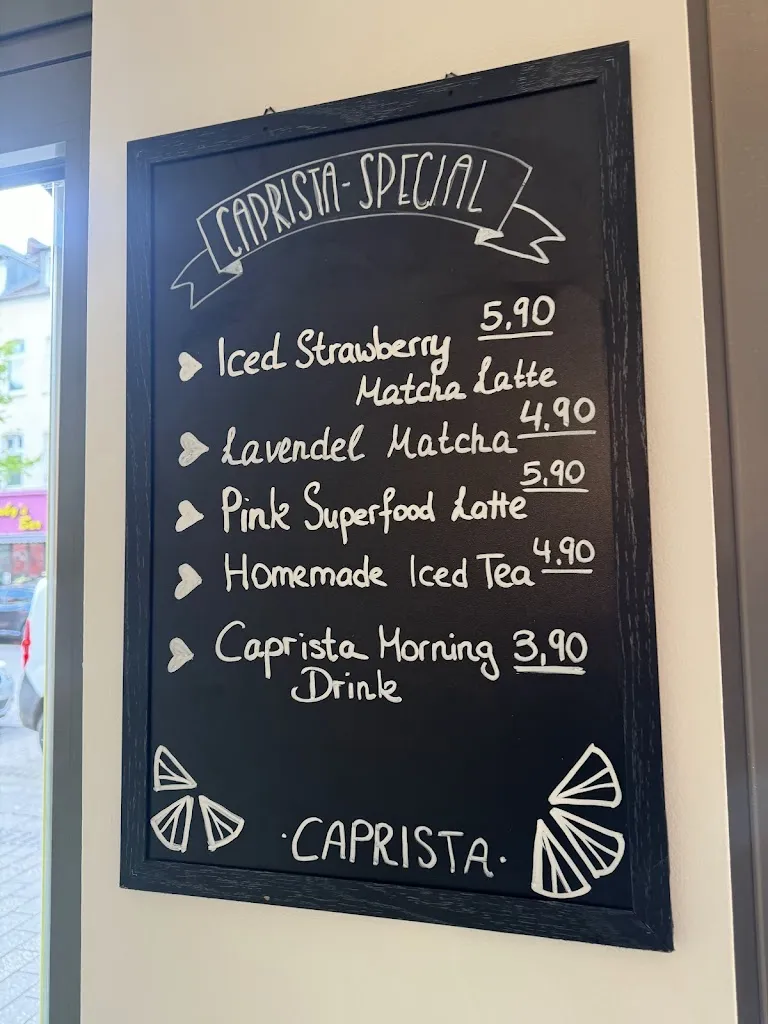 CAPRISTA-SPECIAL
Iced Strawberry 5.90
Matcha Latte
Lavendel Matcha 4.90
Pink Superfood Latte 5.90
Homemade Iced Tea 4.90
Caprista Morning 3,90
Drink
·CAPRISTA·